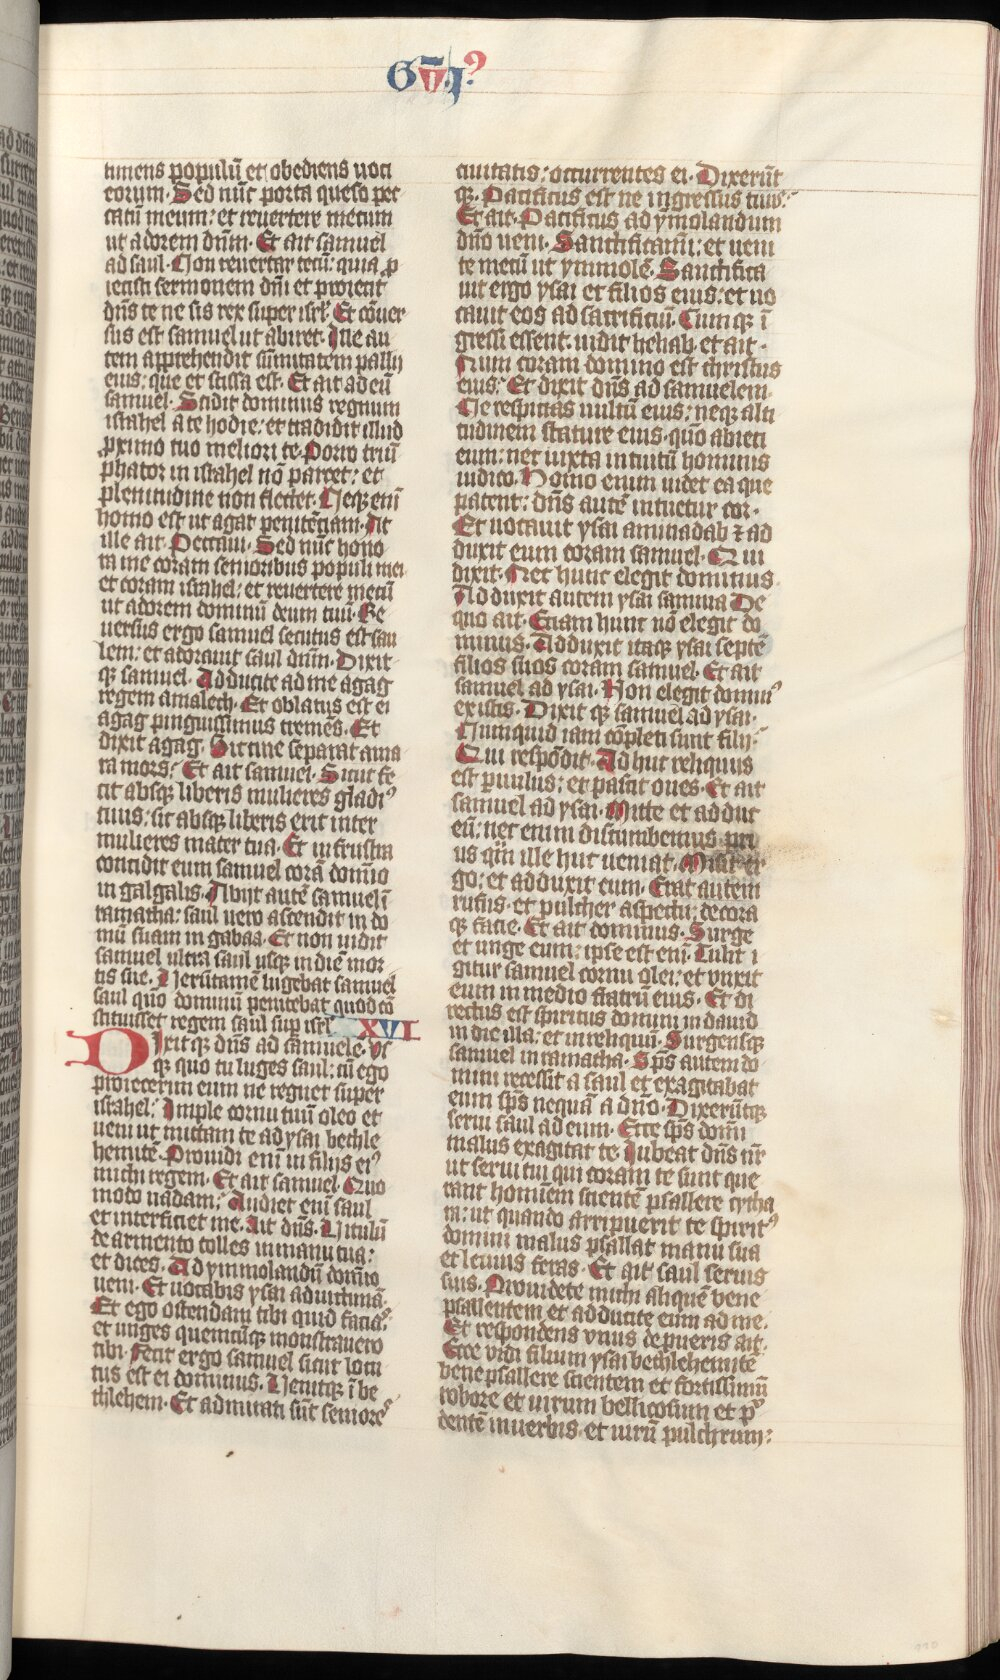 GVM I⁹
timens populū et obediens uoci
eorum. Sed nūc porta queso pec
catū meum: et reuertere mecum
ut adorem dnm̄. Et ait samuel
ad saul. Non reuertar tecū: quia ꝓ
iecisti sermonem dnī et proiecit
dns̄ te ne sis rex super isrl̄. Et cōuer
sus est samuel ut abiret. Ille au
tem apprehendit sūmitatem pallij
eius: que et scissa est. Et ait ad eū
samuel. Scidit dominus regnum
israhel a te hodie: et tradidit illud
ꝓximo tuo meliori te. Porro triū
phator in israhel nō parcet: et
plenitudine non flectet. Neqꝫ enī
homo est ut agat penitēciam. At
ille ait. Peccaui. Sed nūc hono
ra me coram senioribus populi mei
et coram israhel: et reuertere mecū
ut adorem dominū deum tuū. Re
uersus ergo samuel secutus est sau
lem: et adorauit saul dnm̄. Dixit
qꝫ samuel. Adducite ad me agag
regem amalech. Et oblatus est ei
agag pinguissimus tremēs. Et
dixit agag. Siccine separat ama
ra mors: Et ait samuel. Sicut fe
cit absqꝫ liberis mulieres gladi⁹
tuus: sic absqꝫ liberis erit inter
mulieres mater tua. Et in frustra
concidit eum samuel corā domīo
in galgalis. Abijt autē samuel ī
ramatha: saul uero ascendit in do
mū suam in gabaa. Et non uidit
samuel ultra saul usqꝫ in diē mor
tis sue. Uerūtamē lugebat samuel
saul quo dominū penitebat quod cō
stituisset regem saul sup isrl̄. XVI
Dixitqꝫ dns̄ ad samuelē. Us
qꝫ quo tu luges saul: cū ego
proiecerim eum ne regnet super
israhel: Imple cornu tuū oleo et
ueni ut mittam te ad ysai bethle
hemitē. Prouidi enī in filijs ei⁹
michi regem. Et ait samuel. Quo
modo uadam: Audiet enī saul
et interficiet me. Ait dns̄. Uitulū
de armento tolles in manu tua:
et dices. Ad ymmolandū domīo
ueni. Et uocabis ysai ad uictimā.
Et ego ostendam tibi quid faciā:
et unges quemcūqꝫ monstrauero
tibi. Fecit ergo samuel sicut locu
tus est ei dominus. Uenitqꝫ ī be
thlehem. Et admirati sūt seniores
ciuitatis: occurrentes ei. Dixerūt
qꝫ. Pacificus est ne ingressus tuus:
Et ait. Pacificus ad ymolandum
dnō ueni. Sanctificamī: et ueni
te mecū ut ymmolē. Sanctifica
uit ergo ysai et filios eius: et uo
cauit eos ad sacrificiū. Cumqꝫ ī
gressi essent: uidit heliab et ait.
Num coram domino est christus
eius: Et dixit dns̄ ad samuelem.
Ne respicias uultū eius: neqꝫ alti
tudinem stature eius. quō abieci
eum: nec iuxta intuitū hominis
iudico. Homo enim uidet ea que
patent: dns̄ autē intuetur cor.
Et uocauit ysai aminadab ⁊ ad
duxit eum coram samuel. Qui
dixit. Nec hunc elegit dominus.
Adduxit autem ysai samma De
quo ait. Etiam hunc nō elegit do
minus. Adduxit itaqꝫ ysai septē
filios suos coram samuel. Et ait
samuel ad ysai. Non elegit domin⁹
ex istis. Dixit qꝫ samuel ad ysai.
Numquid iam cōpleti sunt filij:
Qui respōdit. Ad huc reliquus
est puulus: et pascit oues. Et ait
samuel ad ysai. Mitte et adduc
eū: nec enim discumbemus pri
us qm̄ ille huc ueniat. Misit er
go: et adduxit eum. Erat autem
rufus. et pulcher aspectu: decora
qꝫ facie. Et ait dominus. Surge
et unge eum: ipse est enī. Tulit i
gitur samuel cornu olei: et vnxit
eum in medio fratrū eius. Et di
rectus est spiritus domini in dauid
in die illa: et in reliquū. Surgensqꝫ
samuel in ramatha. Sps̄ autem do
mini recessit a saul et exagitabat
eum sps̄ nequā a dnō. Dixerūtqꝫ
serui saul ad eum. Ecce sps̄ domī
malus exagitat te. Iubeat dns̄ nr̄
ut serui tui qui coram te sunt que
rant hominem scientē psallere cytha
ra: ut quando arripuerit te spirit⁹
domini malus psallat manu sua
et leuius feras. Et ait saul seruis
suis. Prouidete michi aliquē bene
psallentem et adducite eum ad me.
Et respondens vnus de pueris ait.
Ecce vidi filium ysai bethlehemitē
bene psallere scientem et fortissimū
robore et uirum bellicosum et pͮ
dentē in uerbis. et uirū pulchrum: